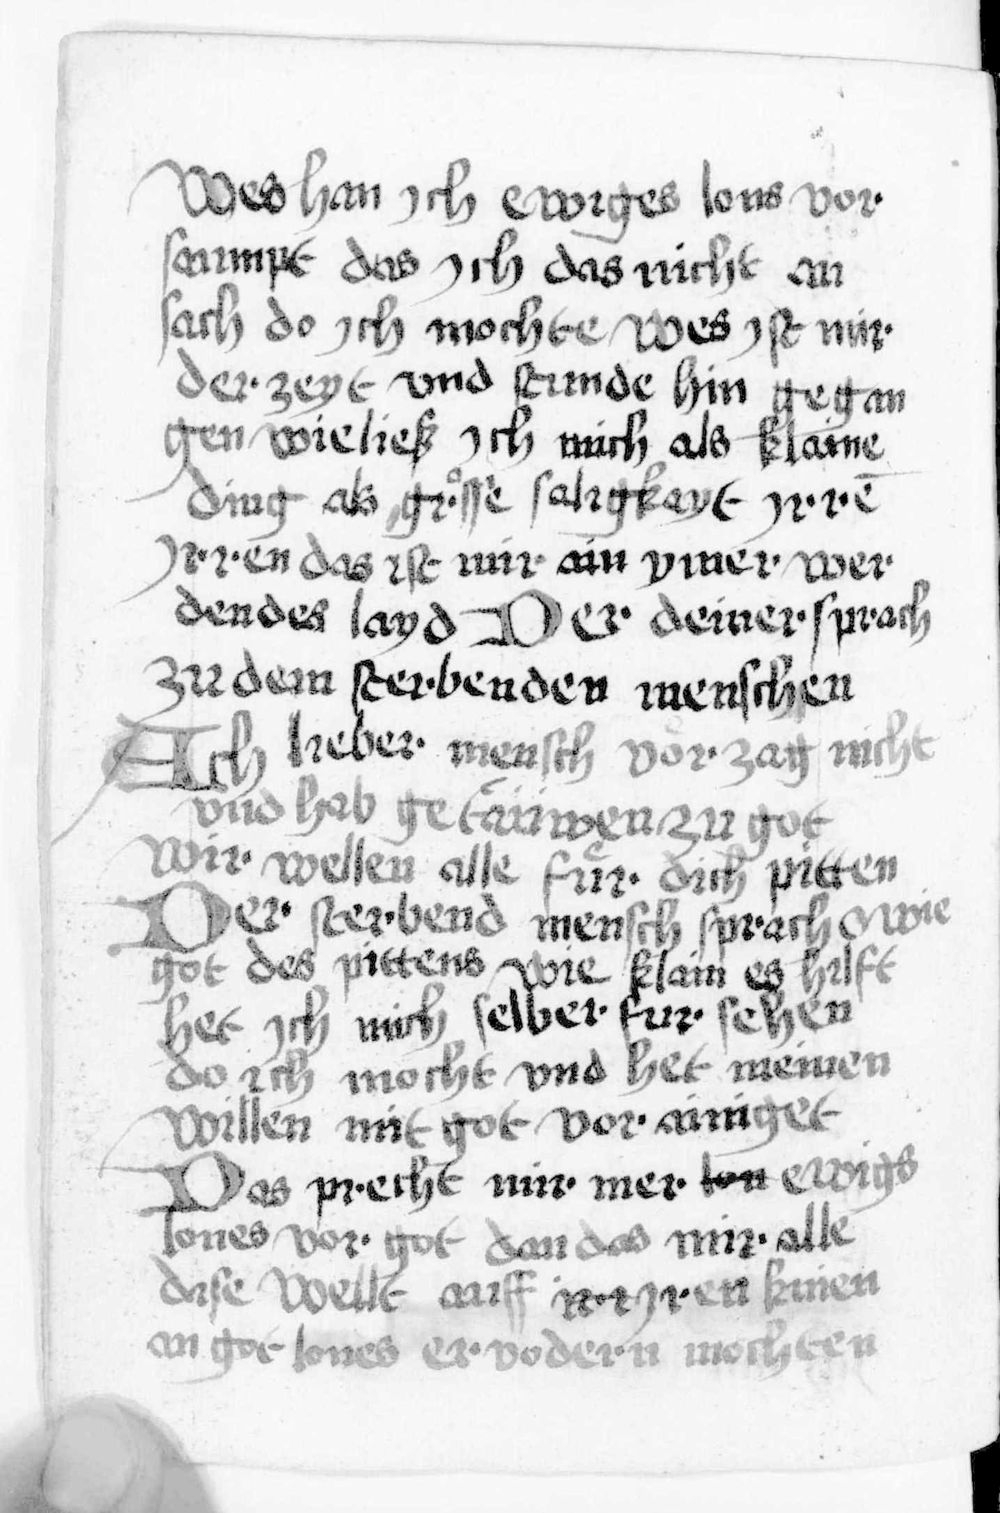 Wes han ich ewiges lons vor
saumpt das ich das nicht an
sach do ich mochte wes ist mir
der zeyt vnd stunde hin gegan
gen wie ließ ich mich als klaine
ding als grosse saligkayt yrrē
yrren das ist mir ain ymer wer
dendes layd Der deiner sprach
zu dem sterbenden menschen
Ach lieber mensch vor zag nicht
vnd hab getrüwen zu got
wir wellen alle für dich pitten
Der sterbend mensch sprach O wie
got des pittens wie klain es hilft
het ich mich selber fur sehen
do ich mocht vnd het meinen
willen mit got vor ainiget
Das precht mir mer lon ewigs
lones vor got dan das mir alle
dise wellt auff iren knien
an got lones ervodern mochten